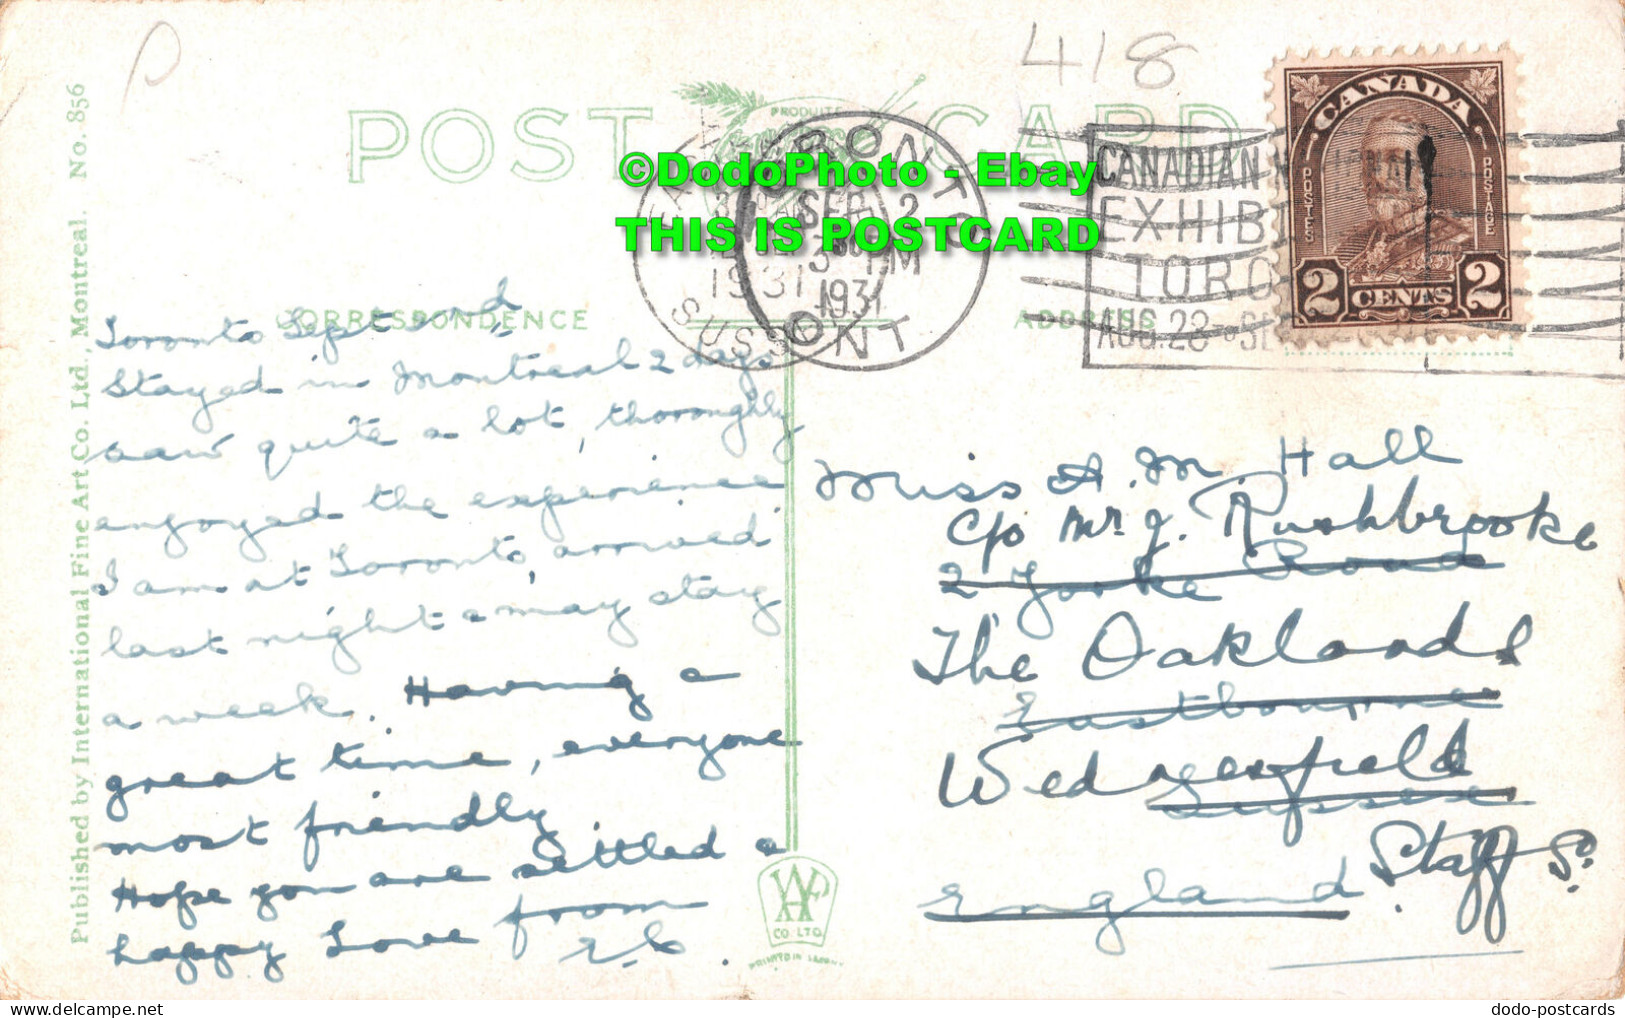 418
P
POST CARD
PRODUITS
©DodoPhoto - Ebay
THIS IS POSTCARD
TORONTO
SEP 2
3 PM
1931
ONT
1931
SUSS
CANADIAN
EXHIBI
TORO
AUG. 28
CANADA
POSTES
POSTAGE
2 CENTS 2
CORRESPONDENCE
ADDRESS
Published by International Fine Art Co. Ltd., Montreal. No. 856
Toronto Sept 2nd
Stayed in Montreal 2 days
saw quite a lot, thoroughly
enjoyed the experience
I am at Toronto, arrived
last night & may stay
a week. Having a
great time, everyone
most friendly
Hope you are settled &
happy Love from
Miss A. M. Hall
c/o Mr. J. Rushbrooke
2 Yorke Road
The Oaklands
Eastbourne
Wednesfield
Sussex
Staffs
England
CO. LTD.
dodo-postcards